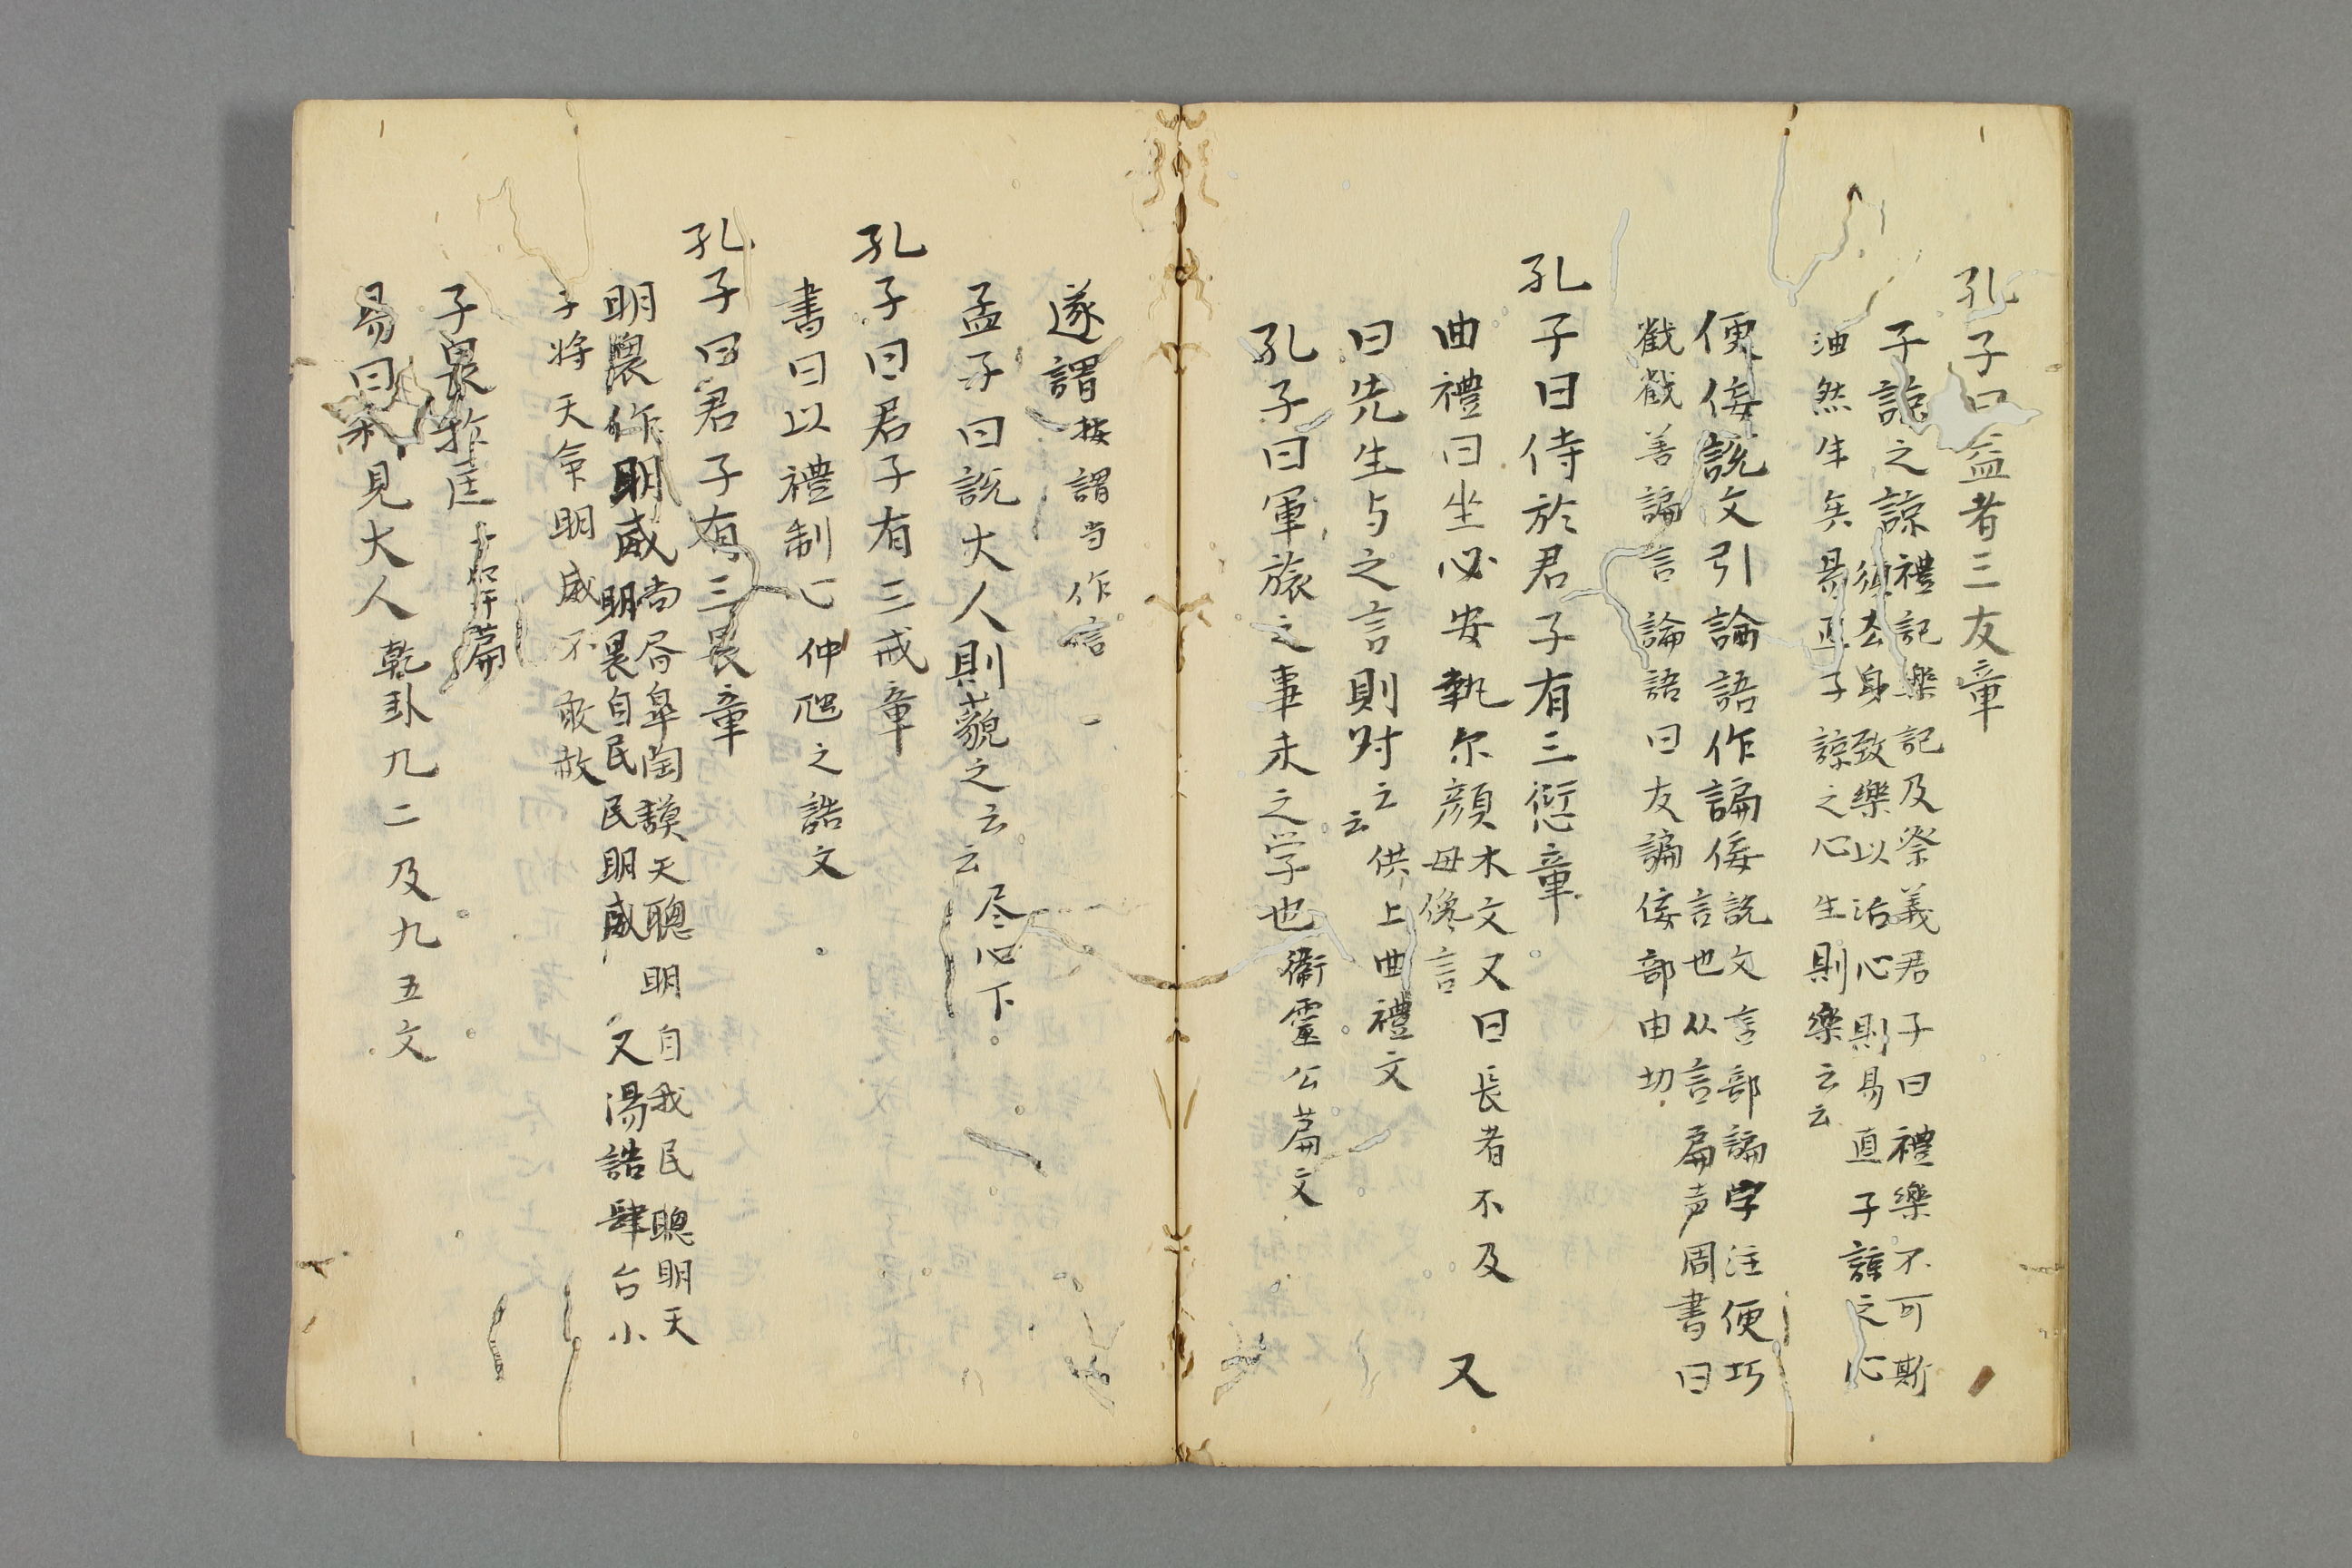 孔子曰益者三友章
子諒之諒禮記樂記及祭義君子曰禮樂不可斯
須去身致樂以治心則易直子諒之心
油然生矣易直子諒之心生則樂云云
便佞說文引論語作諞佞說文言部諞字注便巧
言也从言扁声周書曰
戳戳善諞言論語曰友諞佞部田切
孔子曰侍於君子有三愆章
曲禮曰坐必安執尓顔木文又曰長者不及
毋儳言 又
曰先生与之言則対云云供上曲禮文
孔子曰軍旅之事未之学也衞靈公萹文
遂謂按謂当作言
孟子曰說大人則藐之云云尽心下
孔子曰君子有三戒章
書曰以禮制心仲虺之誥文
孔子曰君子有三畏章
明作明威尚皋陶謨天聰明自我民聰明天
明畏自民民明威又湯誥肆台小
子将天命明威不敢赦
子畏於匡子罕萹
易曰利見大人乾卦九二及九五文